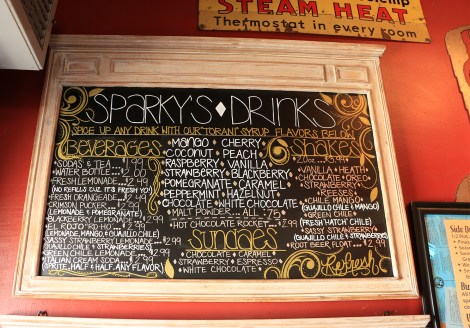 STEAM HEAT
Thermostat in every room
SPARKY'S DRINKS
SPICE UP ANY DRINK WITH OUR TORANI SYRUP FLAVORS BELOW
Beverages
SODAS & TEA
WATER BOTTLE
FRESH LEMONADE
(NO REFILLS CUZ IT'S FRESH YO!)
FRESH ORANGEADE
CRIMSON PUCKER
LEMONADE & POMEGRANATE
BLACKBERRY LEMONADE
EL ROJO RIO HO
LEMONADE MANGO & GUAJILLO CHILE
SASSY STRAWBERRY LEMONADE
GUAJILLO CHILE & STRAWBERRIES
GREEN CHILE LEMONADE
ITALIAN CREAM SODA
(SPRITE, HALF & HALF ANY FLAVOR)
MANGO CHERRY
COCONUT PEACH
RASPBERRY VANILLA
STRAWBERRY BLACKBERRY
POMEGRANATE CARAMEL
PEPPERMINT HAZELNUT
CHOCOLATE WHITE CHOCOLATE
MALT POWDER ... ALL .75
HOT CHOCOLATE ROCKET 2.99
Sundaes 2.99
CHOCOLATE CARAMEL
STRAWBERRY ESPRESSO
WHITE CHOCOLATE
Shakes
VANILLA HEATH
CHOCOLATE OREO
STRAWBERRY
REESES
CHILE MANGO
(GUAJILLO CHILE & MANGO)
GREEN CHILE
(FRESH HATCH CHILE)
SASSY STRAWBERRY
(GUAJILLO CHILE & STRAWBERRIES)
ROOT BEER FLOAT 2.99
Refresh